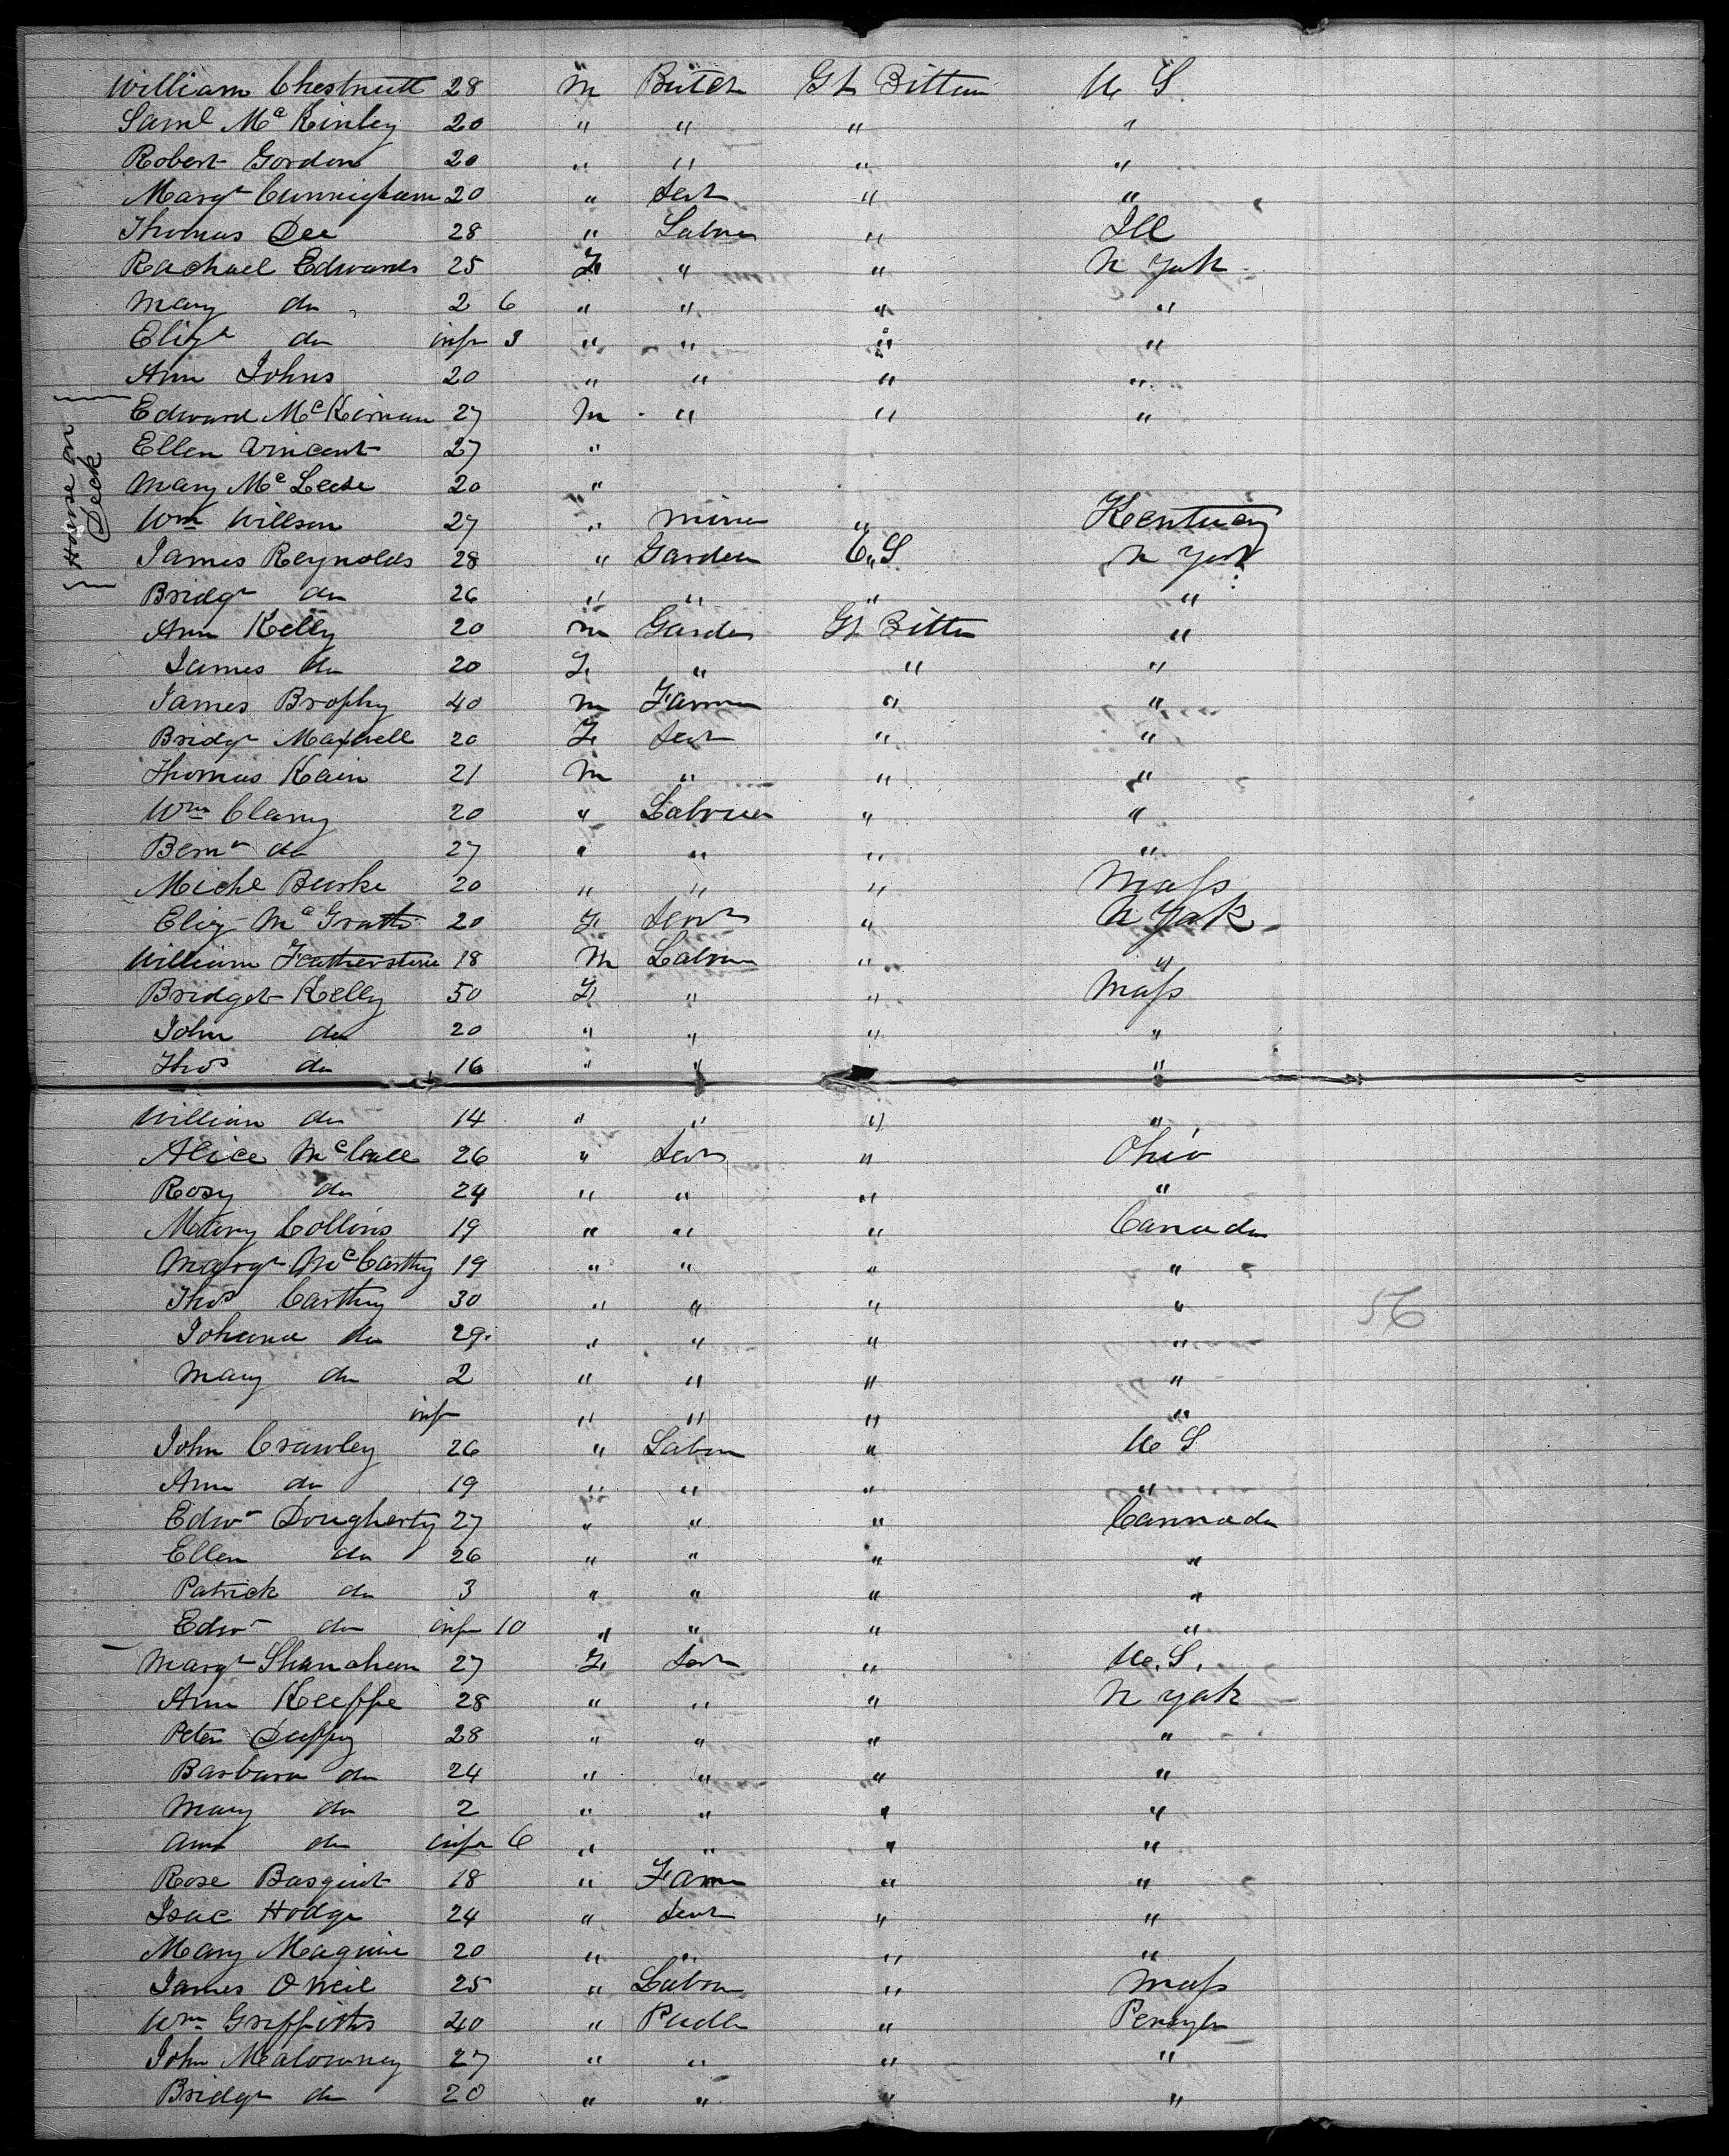 William Chestnutt 28 m Butch Gt Bittan U S
Saml Mc Kinley 20 " " " "
Robert Gordon 20 " " " "
Margt Cunnigham 20 " Servt " "
Thomas Dee 28 " Labrer " Ill
Rachael Edwards 25 F " " N York
Mary do 2 6 " " " "
Eliza do inft 3 " " " "
Ann Johns 20 " " " "
Edward McKirnan 27 m " " "
Ellen Vincent 27 "
Mary McLeese 20 "
House on
Deck
Wm Willson 27 " miner " Kentucy
James Reynolds 28 " Garden U,,S N York
Bridgt do 26 " " " "
Ann Kelly 20 m Garden Gt Bitten "
James do 20 F " " "
James Brophy 40 m Farmer " "
Bridgt Maxwell 20 F Servt " "
Thomas Kain 21 m " " "
Wm Clany 20 " Labruer " "
Bernd do 27 " " " "
Michl Burke 20 " " " Mass
Eliz McGrath 20 F Servt " N York
William Featherstine 18 M Labrer " "
Bridget Kelly 50 F " " Mass
John do 20 " " " "
Thos do 16 " " " "
William do 14 " " " "
Alice McCall 26 " Servt " Ohio
Rosy do 24 " " " "
Mary Collins 19 " " " Canada
Margt McCarthy 19 " " " "
Thos Carthy 30 " " " " 56
Johana do 29 " " " "
Mary do 2 " " " "
inft " " " "
John Crawley 26 " Labrer " U S
Ann do 19 " " " "
Edwd Dougherty 27 " " " Cannada
Ellen do 26 " " " "
Patrick do 3 " " " "
Edwd do inft 10 " " " "
Margt Shanahan 27 F Servt " U.S.
Ann Keeffe 28 " " " N York
Peter Duffy 28 " " " "
Barbara do 24 " " " "
Mary do 2 " " " "
Ann do inft 6 " " " "
Rose Basquist 18 " Farm " "
Isac Hodge 24 " Servt " "
Mary Maguire 20 " " " "
James O Neil 25 " Labrer " Mass
Wm Griffiths 40 " Pudlr "
John Malowney 27 " " " "
Bridgt do 20 " " " "